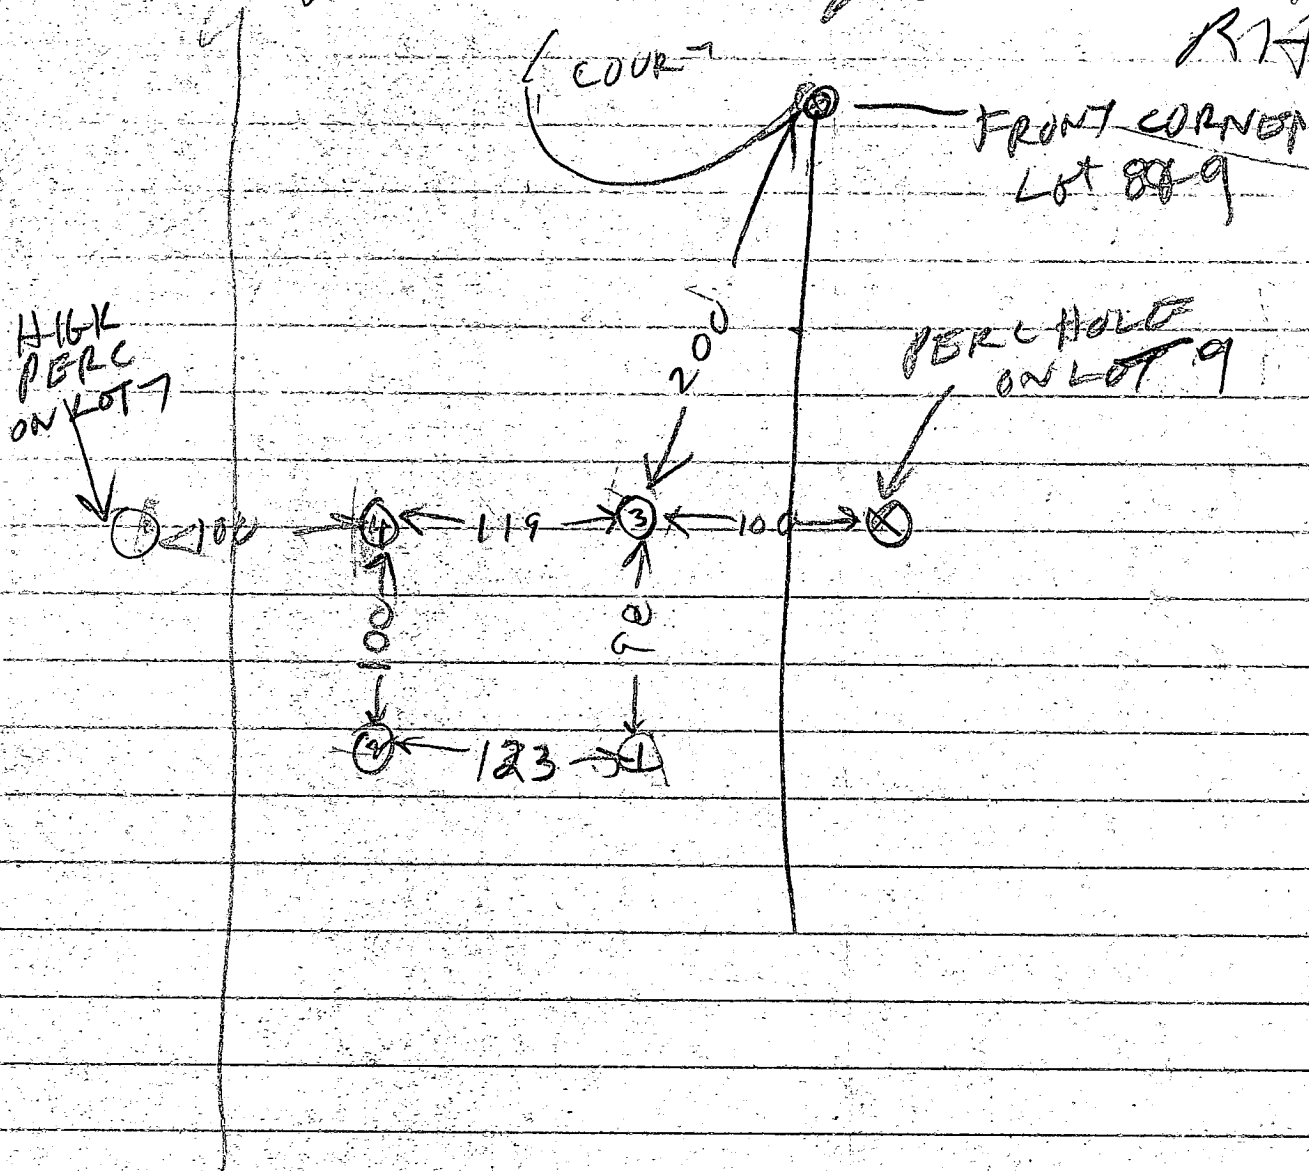 COURT
FRONT CORNER
Lot 8&9
HIGH
PERC
ON LOT 7
PERC HOLE
ON LOT 9
200
100
4
119
3
100
100
2
123
1